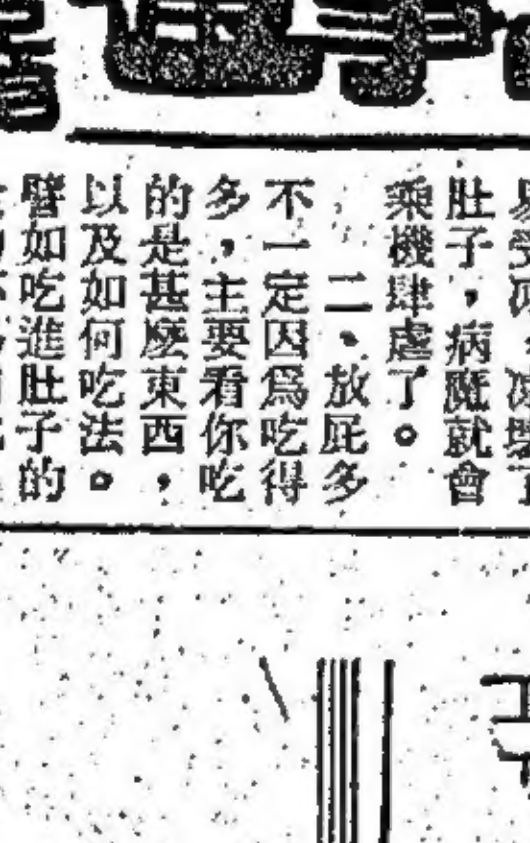 肚子，病魔就會
乘機肆虐了。
二、放屁多
不一定因爲吃得
多，主要看你吃
的是甚麽東西，
以及如何吃法。
譬如吃進肚子的